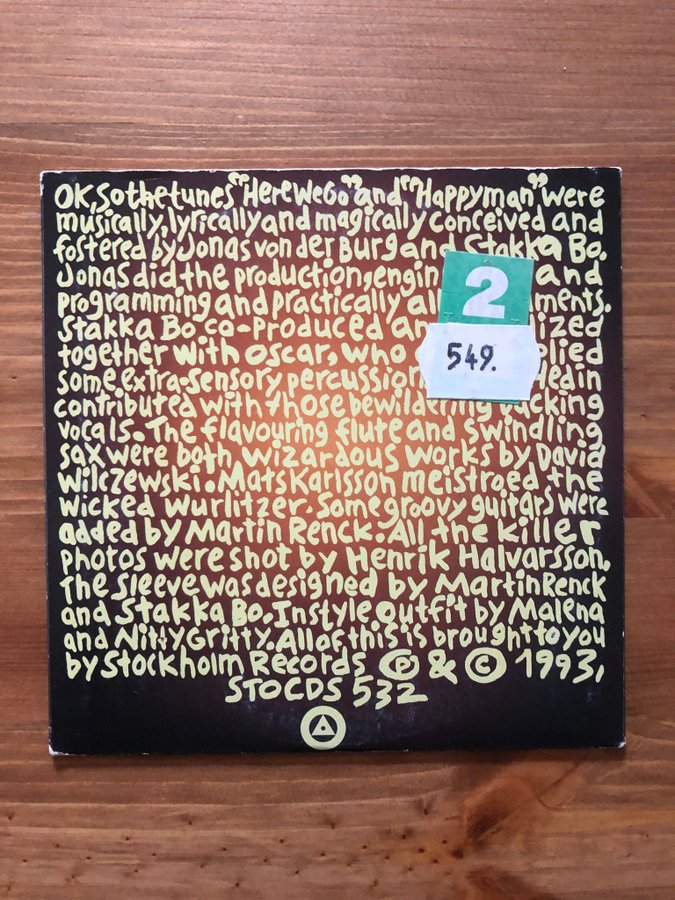 OK, So the tunes "Here We Go" and "Happyman" were
musically, lyrically and magically conceived and
fostered by Jonas von der Burg and Stakka Bo.
Jonas did the production, engin and
programming and practically all ments.
Stakka Bo co-produced an lized
together with Oscar, who lied
some extra-sensory percussion edin
contributed with those bewildering backing
vocals. The flavouring flute and swindling
sax were both wizardous works by David
Wilczewski. Mats Karlsson meistroed the
wicked wurlitzer. Some groovy guitars were
added by Martin Renck. All the killer
photos were shot by Henrik Halvarsson.
The sleeve was designed by Martin Renck
and Stakka Bo. Instyle outfit by Malena
and Nitty Gritty. All of this is brought to you
by Stockholm Records ℗ & © 1993,
STOCDS 532
2
549.